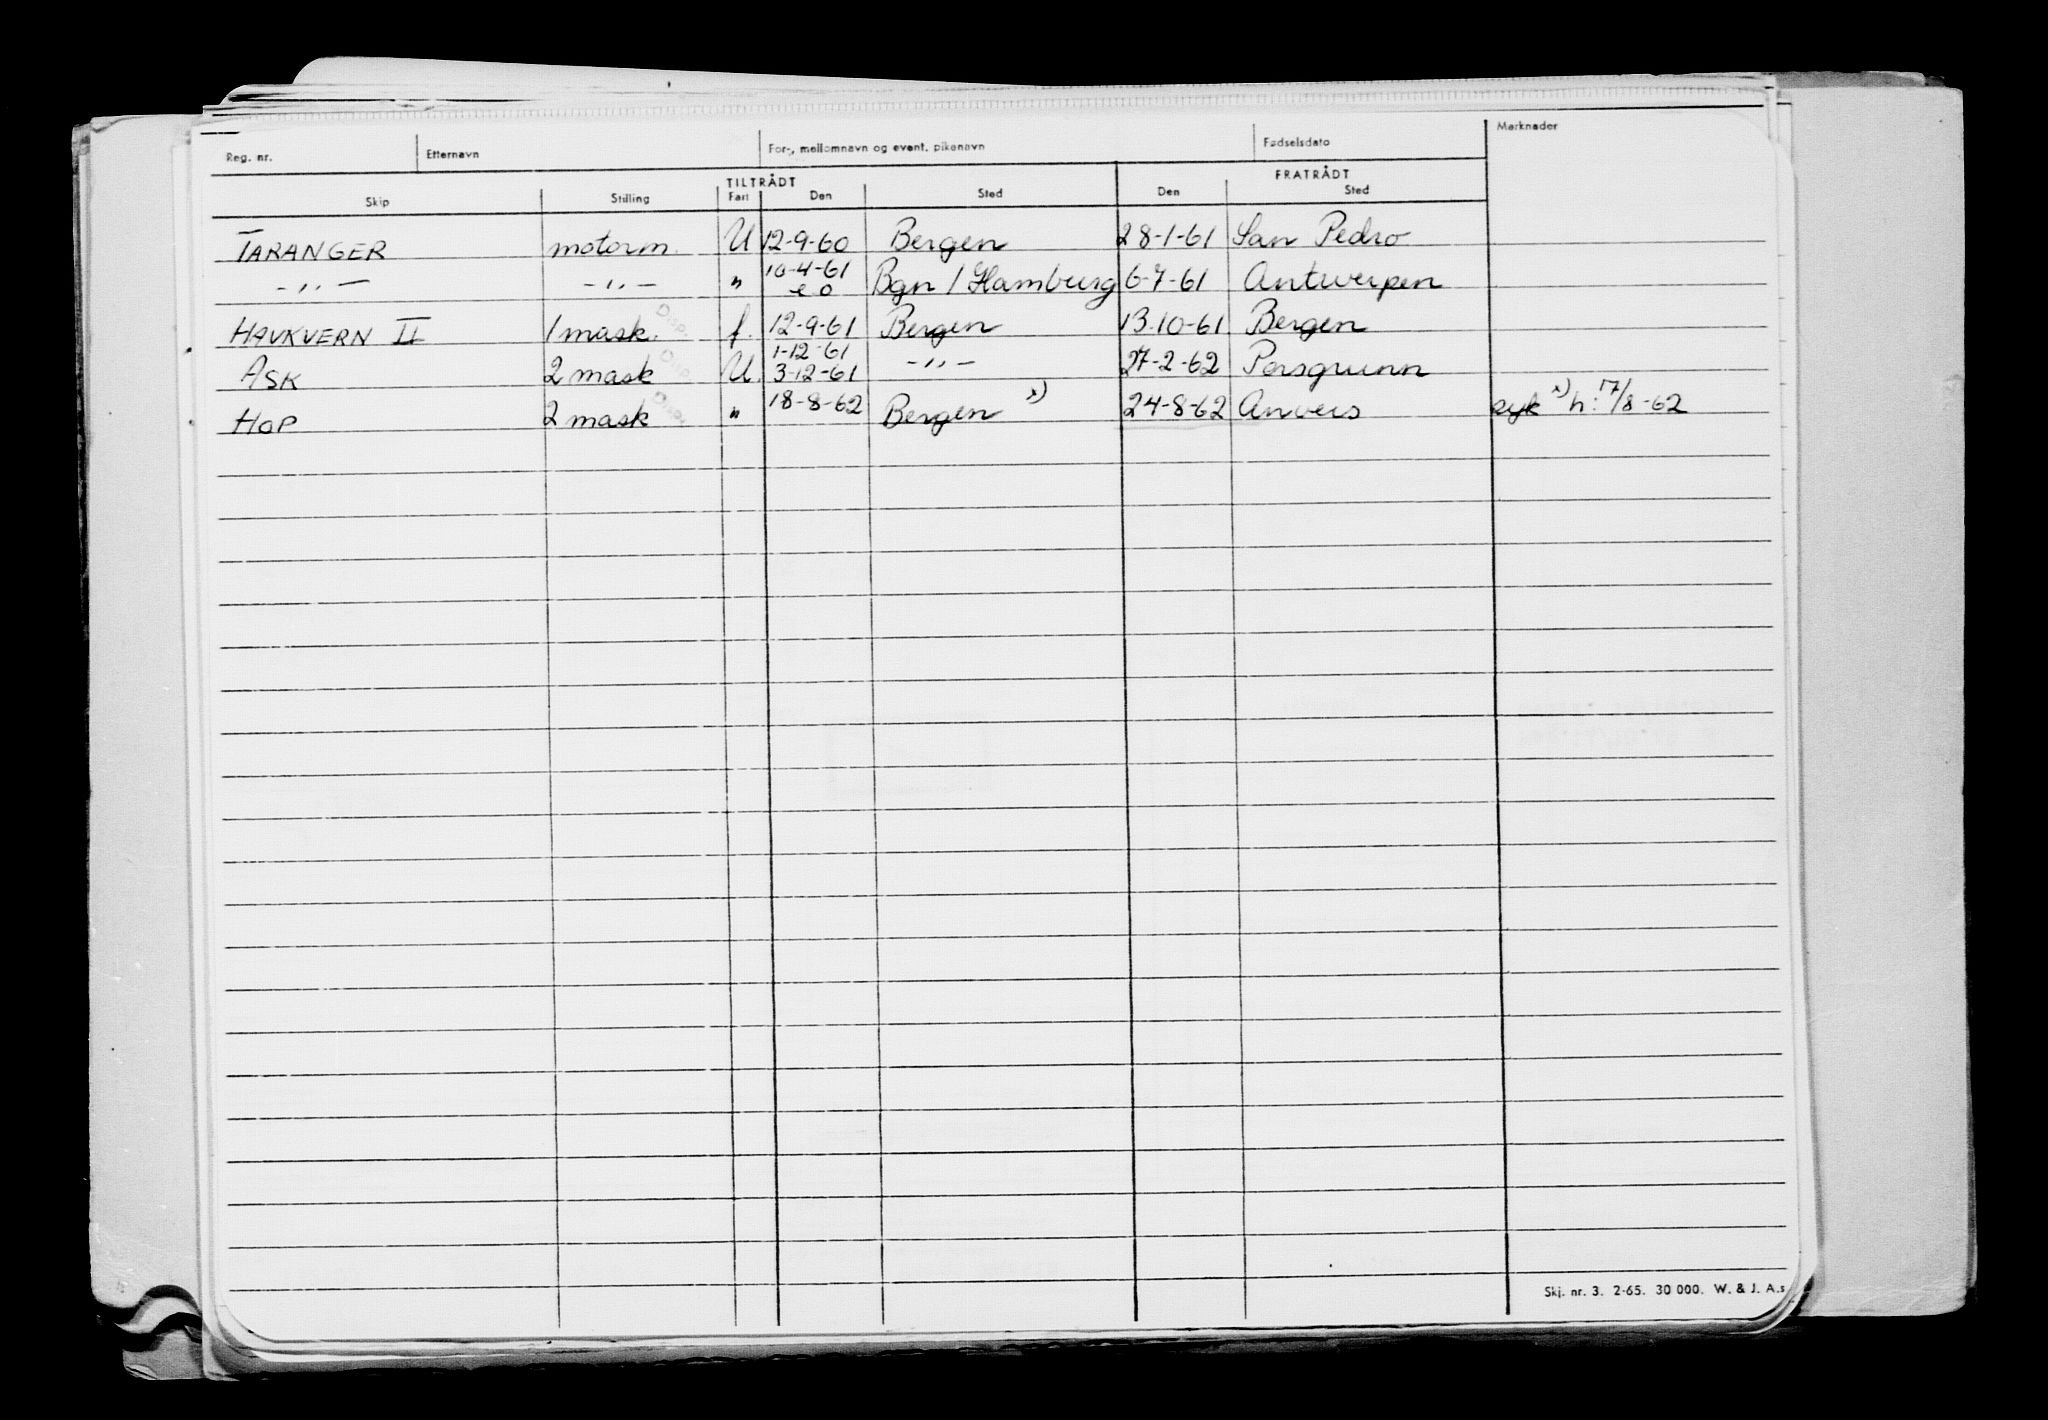 Reg. nr. Etternavn For-, mellomnavn og event. pikenavn Fødselsdato Merknader
TILTRÅDT FRATRÅDT
Skip Stilling Fart Den Sted Den Sted
TARANGER motorm. U 12-9-60 Bergen 28-1-61 San Pedro
-,,- -,,- " 10-4-61 e o Bgn / Hamburg 6-7-61 Antwerpen
HAVKVERN II 1 mask. f. 12-9-61 Bergen 13.10-61 Bergen
1-12-61
ASK 2 mask U. 3-12-61 -,,- 27-2-62 Porsgrunn
HOP 2 mask " 18-8-62 Bergen x) 24-8-62 Anvers syk x) h: 17/8-62
Disp. Disp. Disp.
Skj. nr. 3. 2-65. 30 000. W. & J. A.s